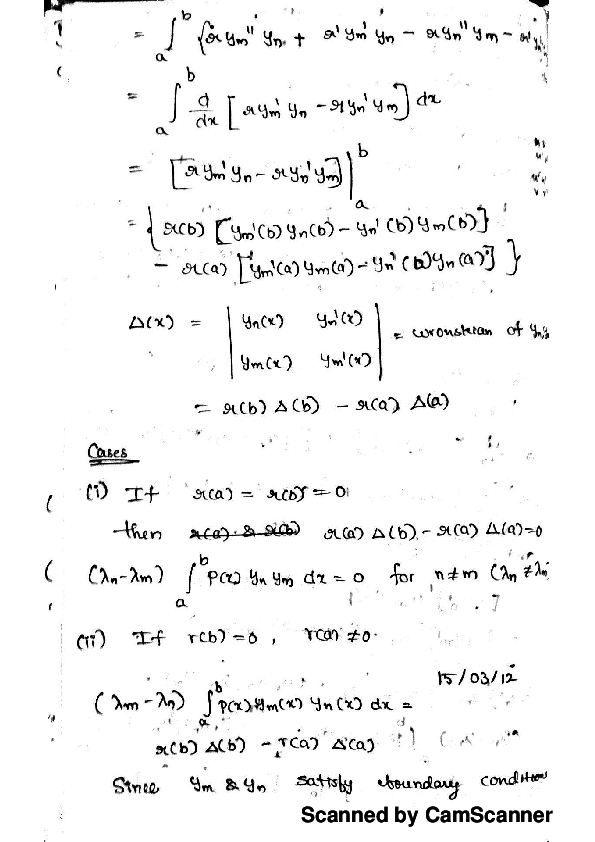 = ∫_a^b {r ym'' yn + r' ym' yn - r yn'' ym - r' yn'
= ∫_a^b d/dx [r ym' yn - r yn' ym] dx
= [r ym' yn - r yn' ym] |_a^b
= { r(b) [ym'(b) yn(b) - yn'(b) ym(b)]
- r(a) [ym'(a) ym(a) - yn'(b) yn(a)] }
Δ(x) = | yn(x) yn'(x) | = wronskian of yn,
| ym(x) ym'(x) |
= r(b) Δ(b) - r(a) Δ(a)
Cases
(i) If r(a) = r(b) = 0
then r(a) & r(b) r(a) Δ(b) - r(a) Δ(a) = 0
(λn - λm) ∫_a^b P(x) yn ym dx = 0 for n ≠ m (λn ≠ λm
(ii) If r(b) = 0, r(a) ≠ 0.
15/03/12
(λm - λn) ∫_a^b P(x) ym(x) yn(x) dx =
r(b) Δ(b) - r(a) Δ(a)
Since ym & yn satisfy boundary condition
Scanned by CamScanner